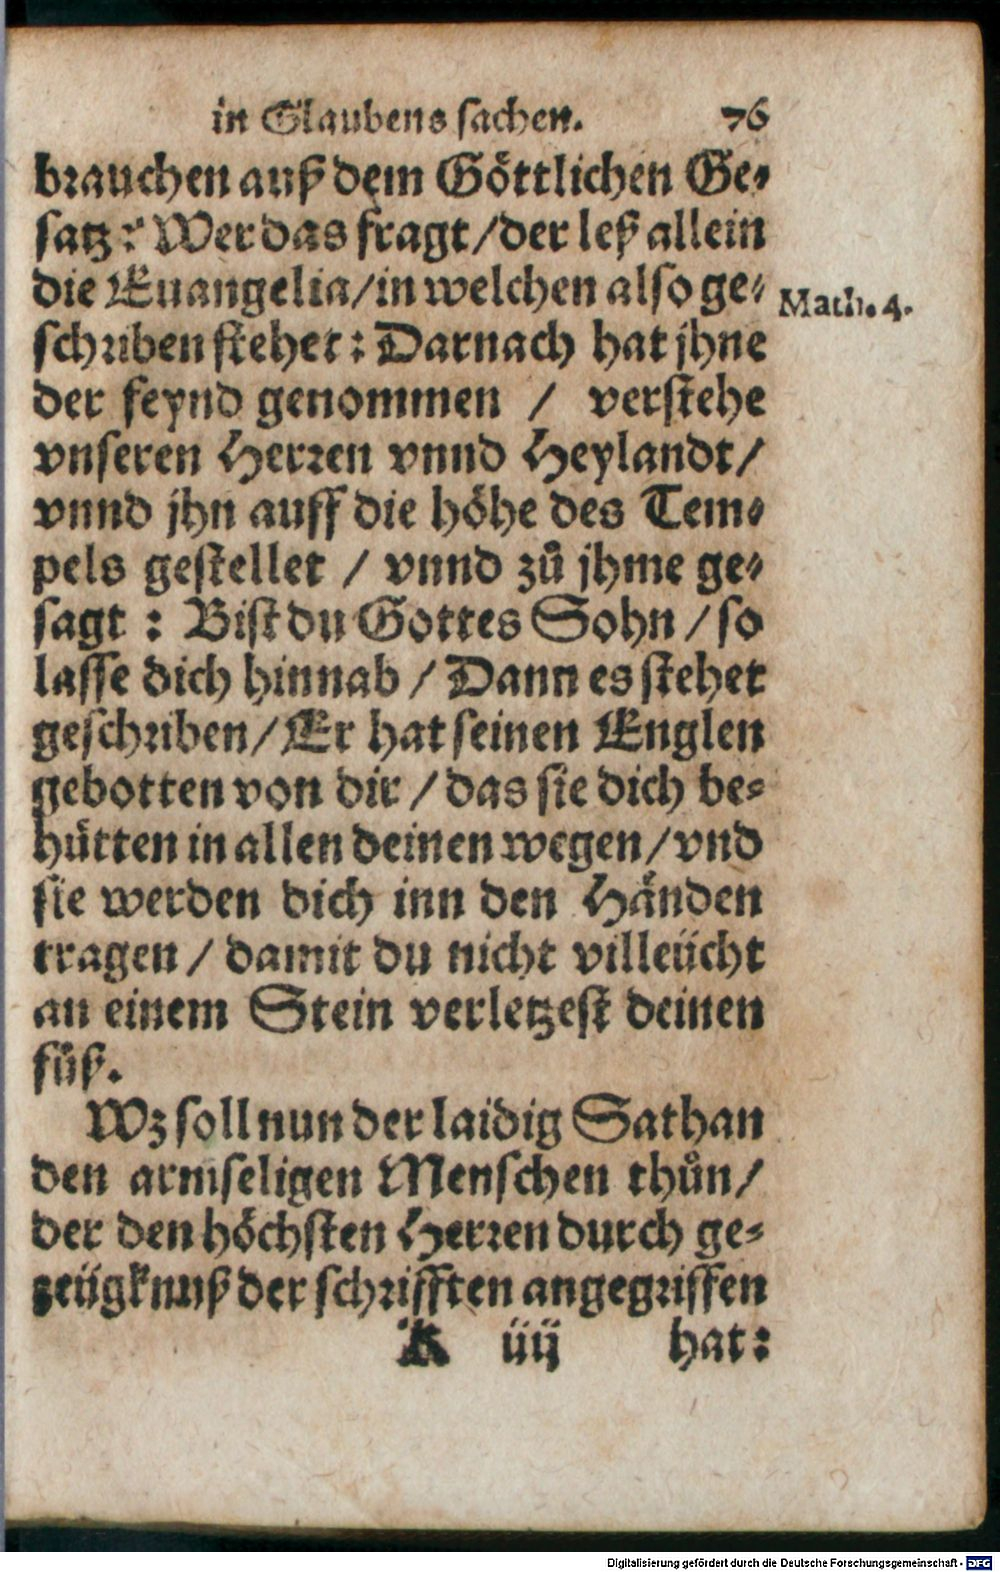 in Glaubens sachen. 76
brauchen auß dem Göttlichen Ge-
satz: Wer das fragt/der leß allein
die Euangelia/in welchen also ge-
schriben stehet: Darnach hat jhne
Math. 4.
der feynd genommen / verstehe
vnseren Herren vnnd Heylandt/
vnnd jhn auff die höhe des Tem-
pels gestellet / vnnd zů jhme ge-
sagt : Bist du Gottes Sohn / so
lasse dich hinnab / Dann es stehet
geschriben/ Er hat seinen Englen
gebotten von dir / das sie dich be-
hütten in allen deinen wegen/vnd
sie werden dich inn den Händen
tragen / damit du nicht villeücht
an einem Stein verletzest deinen
fůß.
Wz soll nun der laidig Sathan
den armseligen Menschen thůn/
der den höchsten Herren durch ge-
zeügknuß der schrifften angegriffen
K iij hat:
Digitalisierung gefördert durch die Deutsche Forschungsgemeinschaft - DFG